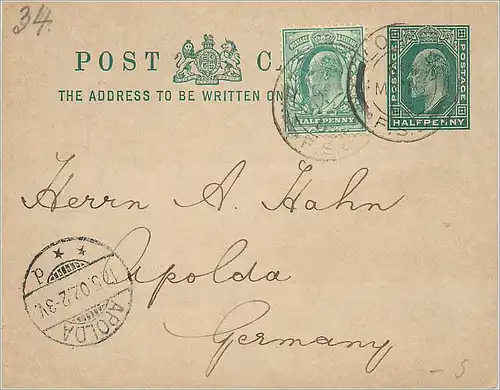 34.
POST CA
THE ADDRESS TO BE WRITTEN ON
HALF PENNY
POSTAGE
HALFPENNY
F.S.
Herrn A. Hahn
Apolda
Germany
APOLDA
- 5